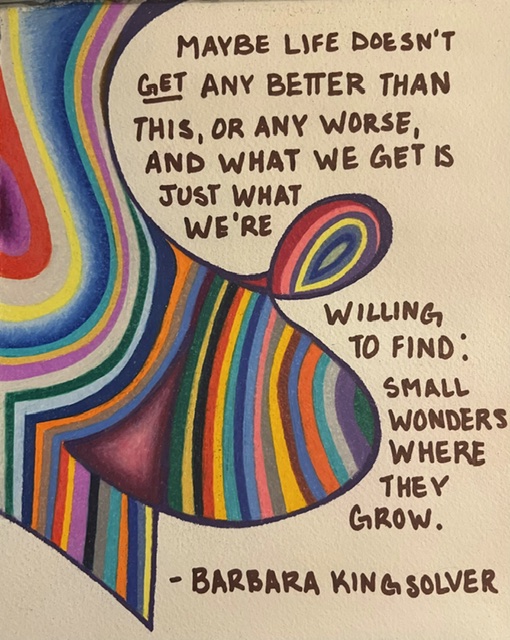 MAYBE LIFE DOESN'T
GET ANY BETTER THAN
THIS, OR ANY WORSE,
AND WHAT WE GET IS
JUST WHAT
WE'RE
WILLING
TO FIND:
SMALL
WONDERS
WHERE
THEY
GROW.
- BARBARA KINGSOLVER